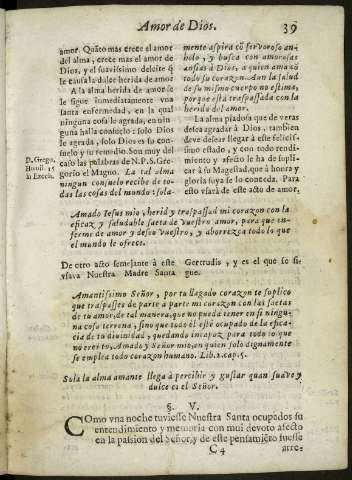 Amor de Dios. 39
amor. Quãto mas crece el amor
del alma, crece mas el amor de
Dios, y el suavissimo deleite q̃
le causa la dulce herida de amor
A la alma herida de amor se
le sigue inmediatamente vna
santa enfermedad, en la qual
ninguna cosa le agrada, en nin-
guna halla consuelo: solo Dios
le agrada, solo Dios es su con-
suelo y su remedio. Son muy del
caso las palabras de N. P. S. Gre-
gorio el Magno. La tal alma
ningun consuelo recibe de to-
das las cosas del mundo: sola-
D. Grego.
Homil. 15
in Ezech.
mente aspira cõ fervoroso an-
helo, y busca con amorosas
ansias à Dios, à quien ama cõ
todo su corazon. Aun la salud
de su mismo cuerpo no estima,
porque està traspassada con la
herida del amor.
La alma piadosa que de veras
desea agradar à Dios, tambien
deve desear llegar à este felicis-
simo estado, y con todo rendi-
miento y afecto le ha de supli-
car à su Magestad, que à honra y
gloria suya se lo conceda. Para
esto vsarà de este acto de amor,
Amado Iesus mio, herid y traspassad mi corazon con la
eficaz y saludable saeta de vuestro amor, para que en-
ferme de amor y deseo vuestro, y aborrezca todo lo que
el mundo le ofrece.
De otro acto semejante à este
vsava Nuestra Madre Santa
Gertrudis, y es el que se si-
gue.
Amantissimo Señor, por tu llagado corazon te suplico
que traspasses de parte à parte mi corazon con las saetas
de tu amor, de tal manera, que no pueda tener en si ningu-
na cosa terrena, sino que todo el este ocupado de la efica-
cia de tu divinidad, quedando incapaz para todo lo que
no eres tu, Amado y Señor mio, en quien solo dignamente
se emplea todo corazon humano. Lib. 2. cap. 5.
Sola la alma amante llega à percibir y gustar quan suave y
dulce es el Señor.
§. V.
Como vna noche tuviesse Nuestra Santa ocupados su
entendimiento y memoria con mui devoto afecto
en la passion del Señor, y de este pensamiẽto fuesse
C 4 arre-